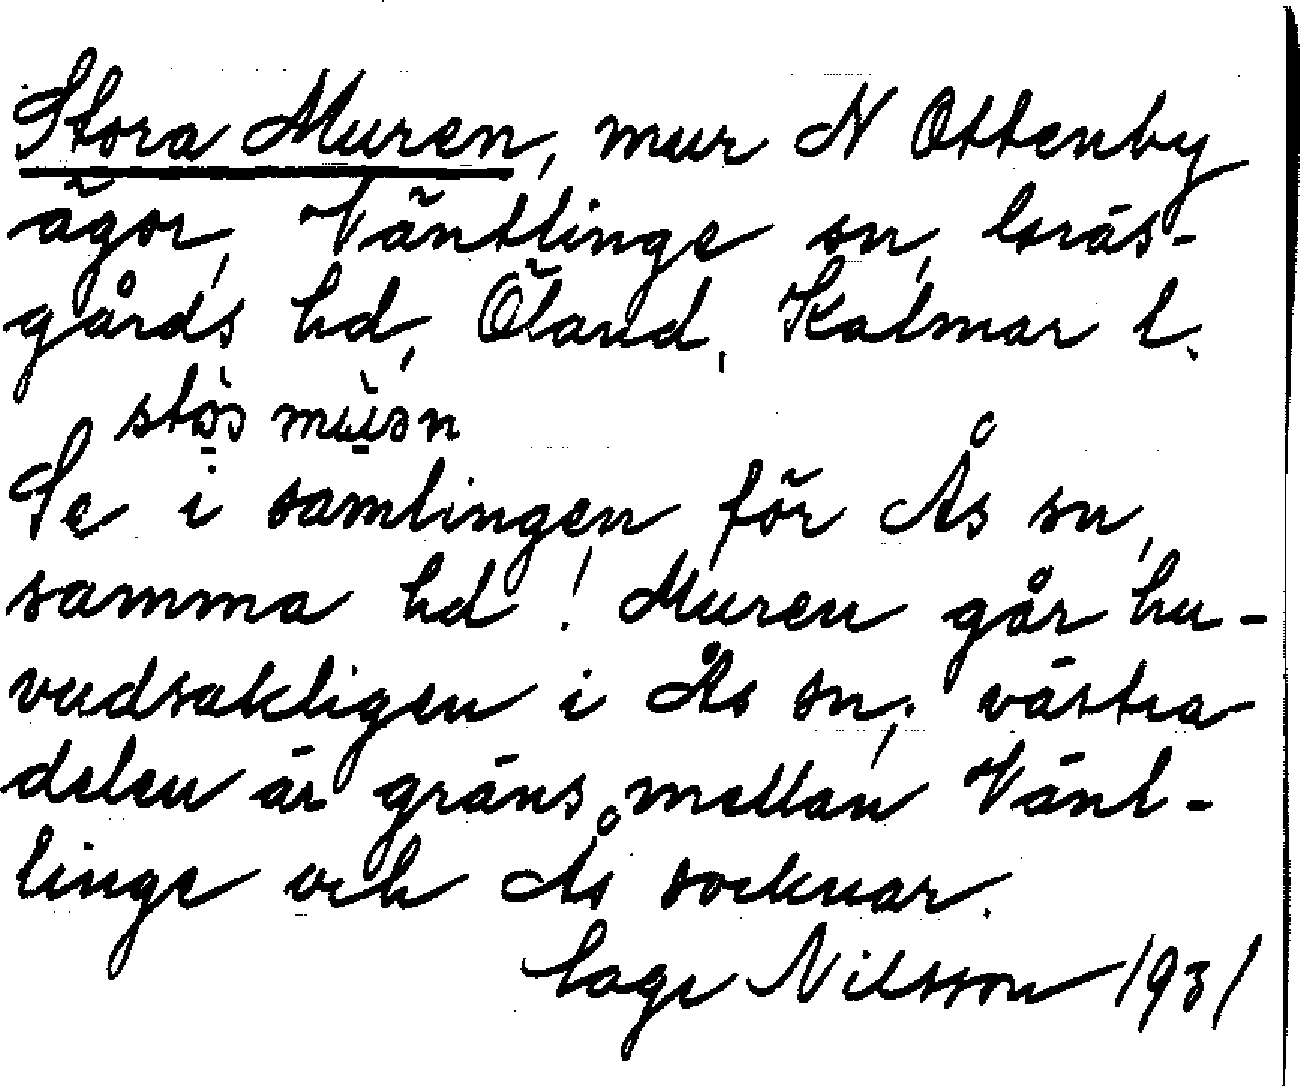 Stora Muren, mur N Ottenby
ägor, Väntlinge sn, Gräs-
gårds hd, Öland, Kalmar l.
Se i samlingen för Ås sn,
samma hd! Muren går hu-
vudsakligen i Ås sn; västra
delen är gräns mellan Vänt-
linge och Ås socknar.
Nilsson 1931